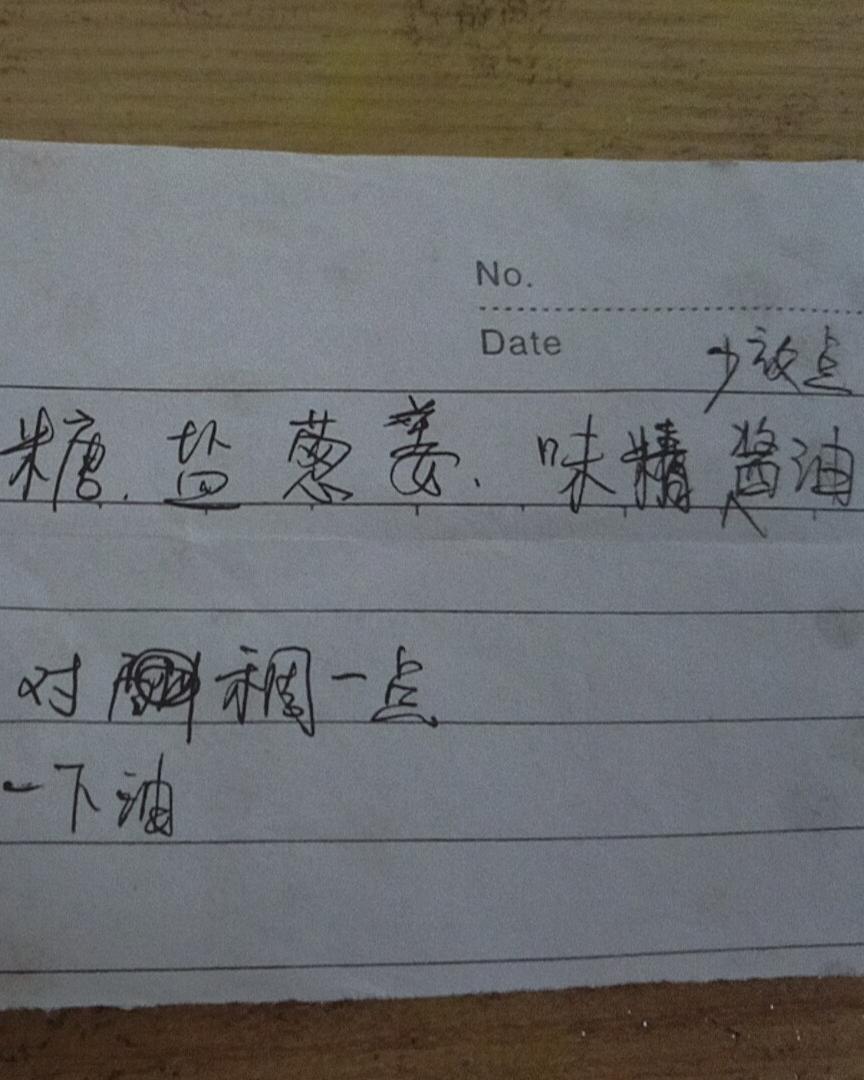 No.
Date
少放点
糖.盐葱姜.味精酱油
对稠一点
一下油